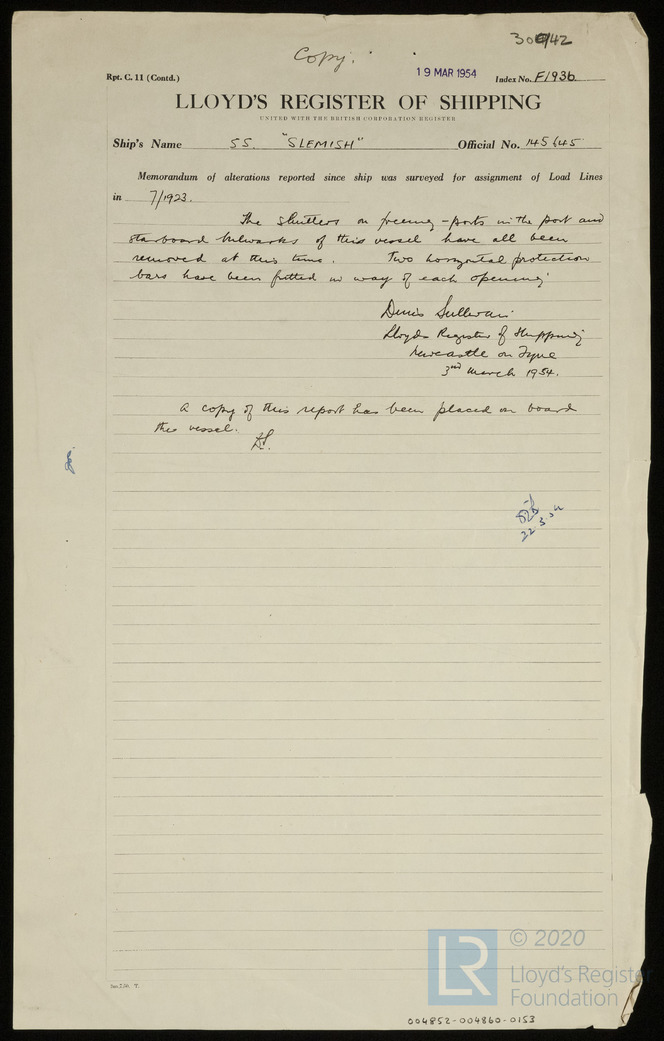 Copy.
19 MAR 1954
Rpt. C. 11 (Contd.)
Index No. F1936
LLOYD'S REGISTER OF SHIPPING
UNITED WITH THE BRITISH CORPORATION REGISTER
Ship's Name SS. "SLEMISH" Official No. 145645
Memorandum of alterations reported since ship was surveyed for assignment of Load Lines
in 7/1923.
The shutters on freeing-ports in the port and
starboard bulwarks of this vessel have all been
removed at this time. Two horizontal protection
bars have been fitted in way of each opening.
Denis Sullivan
Lloyds Register of Shipping
Newcastle on Tyne
3rd March 1954.
A copy of this report has been placed on board
this vessel.
DS.
22.3.54
© 2020
Lloyd's Register
Foundation
004852-004860-0153